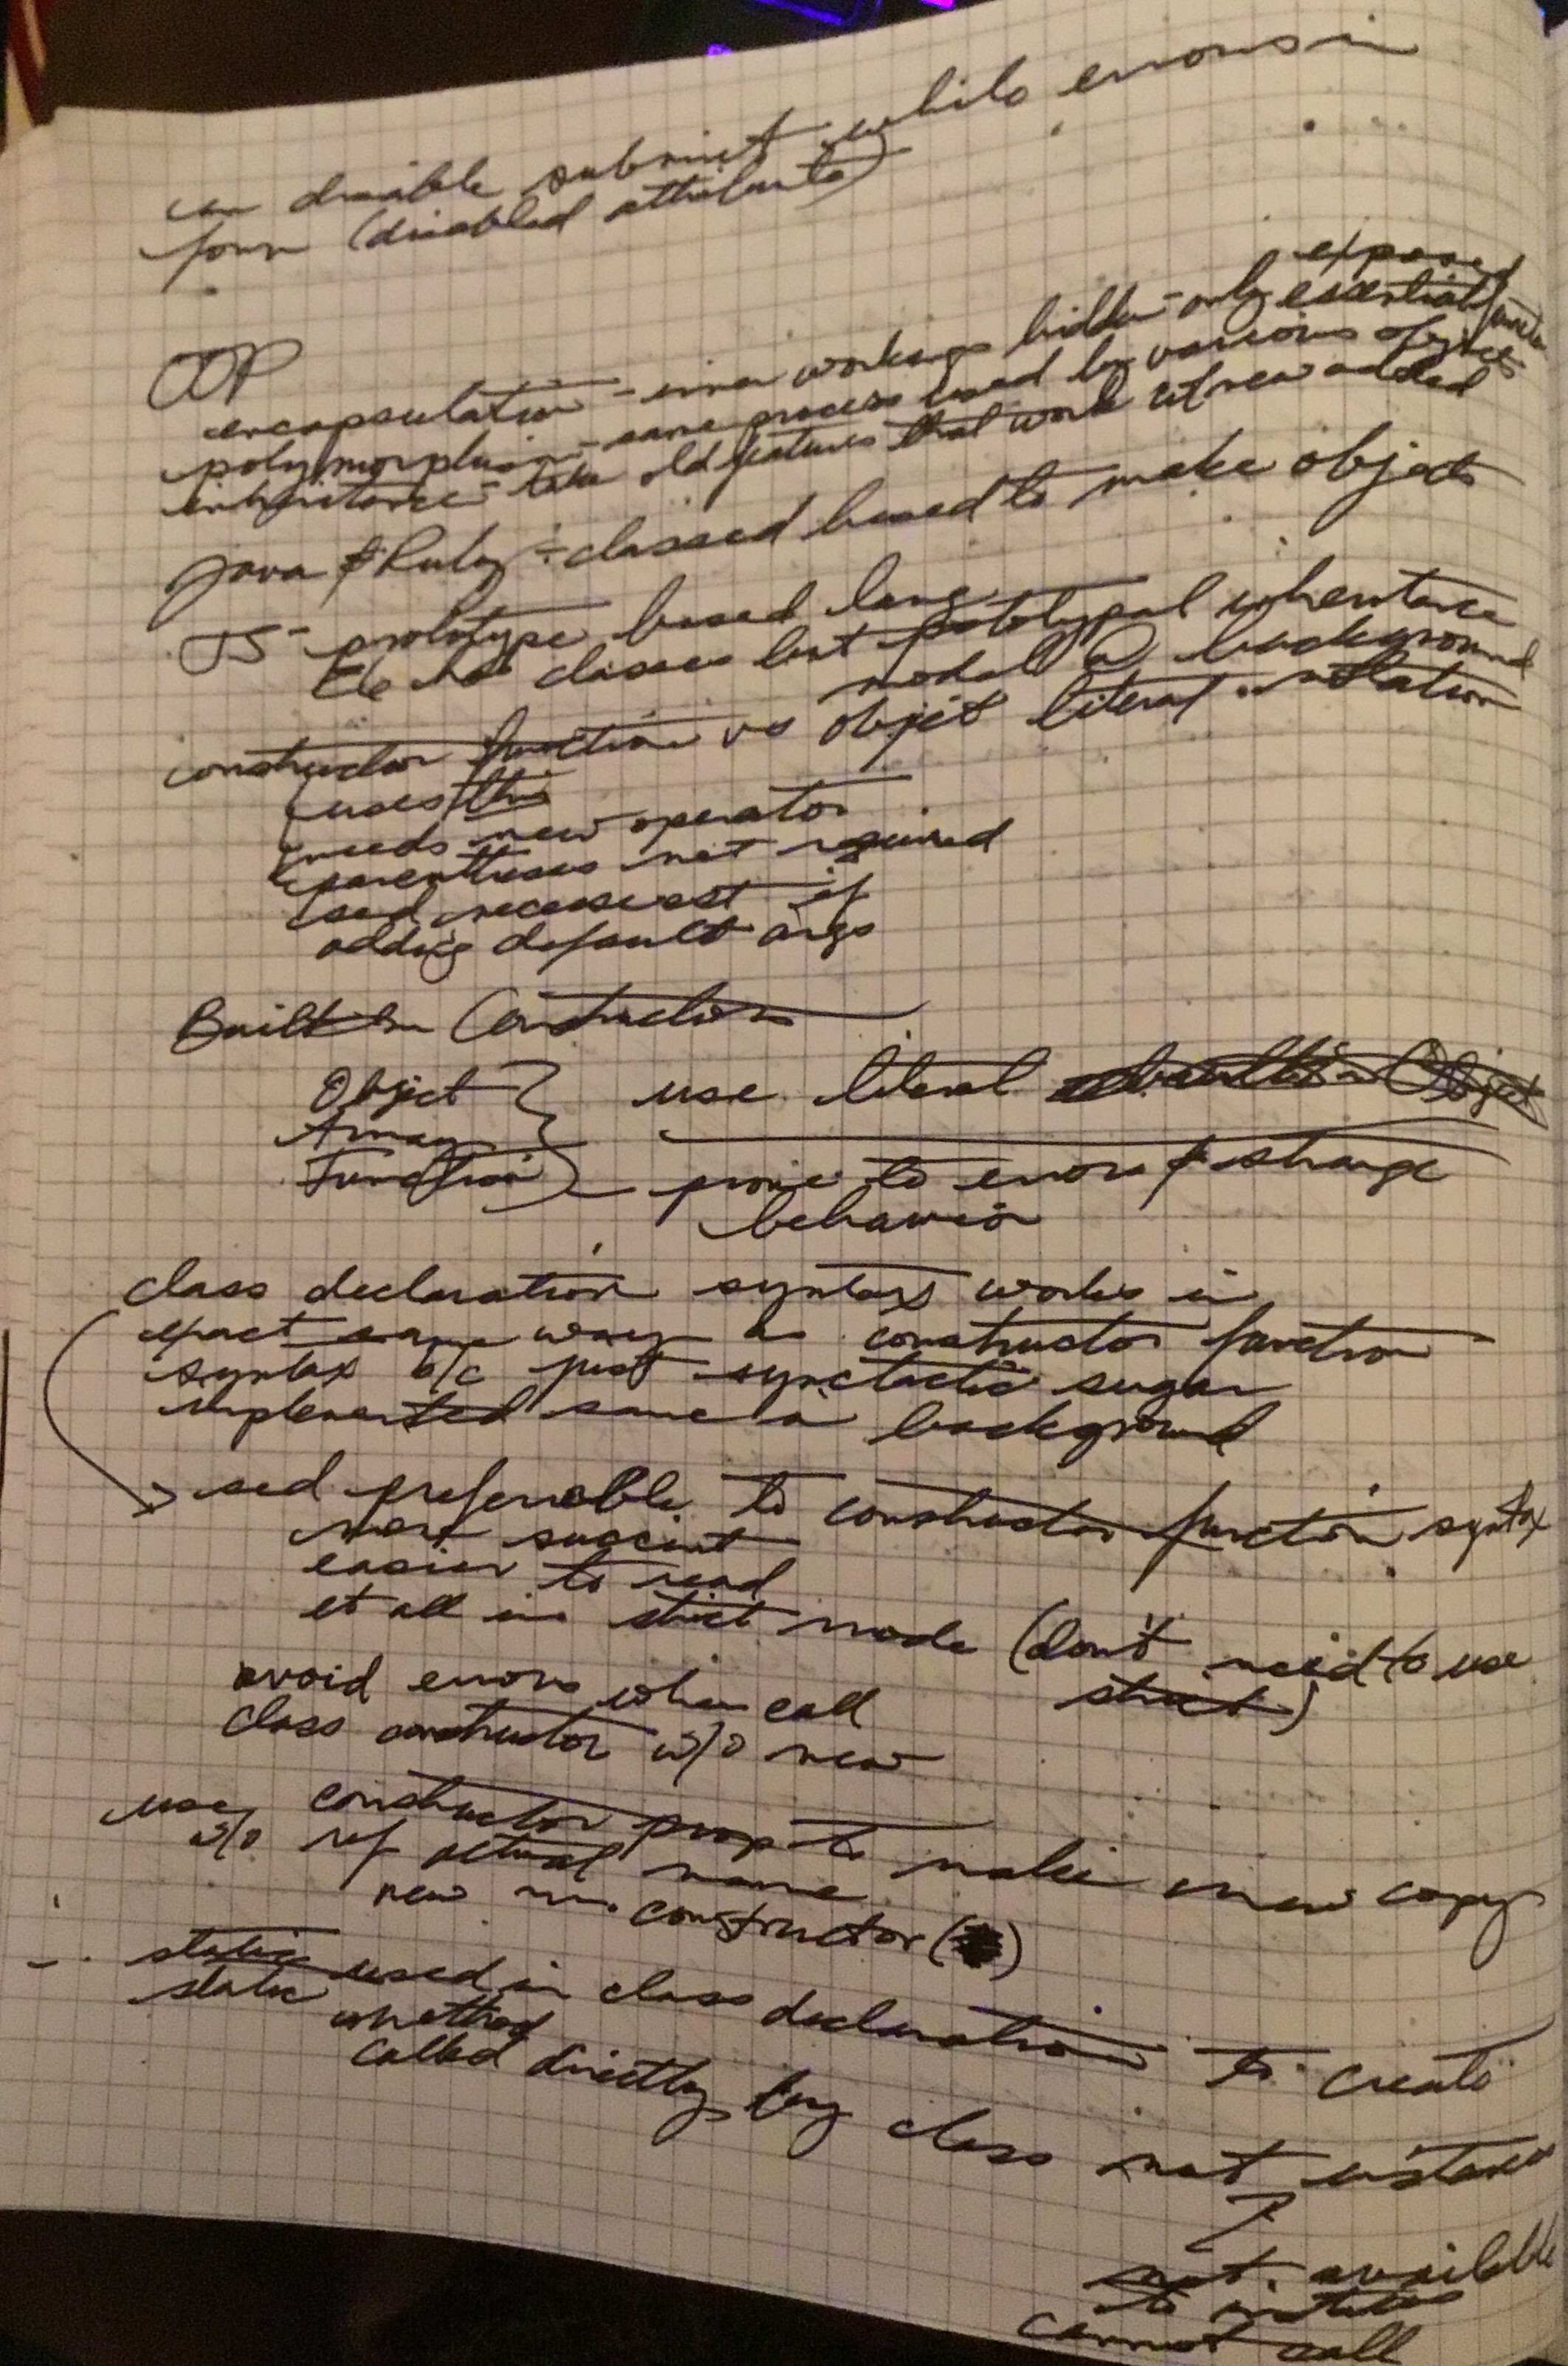 can disable submit while errors in
form (disabled attribute)
OOP
exposed
encapsulation - inner workings hidden - only essential
polymorphism - same process used by various objects
inheritance - take old features that work w/ new added
Java & Ruby - classed based to make objects
JS - prototype based lang
E6 has classes but prototypal inheritance
model @ background
constructor function vs object literal notation
uses this
needs new operator
parentheses not required
adding default args
Built In Constructors
Object
Array
Function
use literal
prone to errors & strange
behavior
class declaration syntax works in
exact same way as constructor function
syntax b/c just synctactic sugar
implemented same in background
and preferrable to constructor function syntax
more succint
easier to read
et all in strict mode (don't need to use
strict)
avoid errors when call
class constructor w/o new
use constructor prop to make new copy
w/o ref actual name
new constructor()
static used in class declaration to create
static method
called directly by class not instance
not available
to instances
cannot call